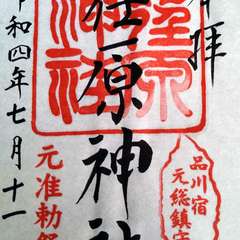 拝
品川宿
元総鎮守
荏原神社
元准勅祭
荏原
神社
令和四年七月十一